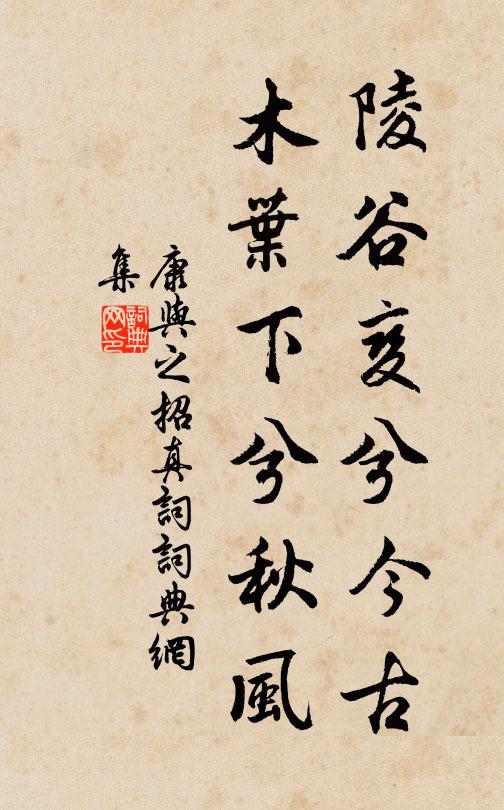 陵谷变兮今古
木葉下兮秋風
康與之招真詞詞典網
集
詞典网印